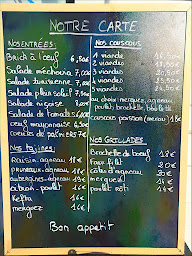 NOTRE CARTE
NOS ENTRÉES
Brick à l'oeuf 6,50€
Salade méchouia 7,00€
Salade tunisienne 7,00€
Salade plein soleil 7,50€
Salade niçoise
Salade de tomates 6,00€
oeuf mayonnaise 4,50€
coeurs de palmiers 7€
Nos Tajines:
Raisin-agneau 18€
pruneaux-agneau 18€
aubergines-agneau 19€
citron-poulet 16€
Kefta 16€
merguez 16€
NOS COUSCOUS
1 viande
2 viandes
3 viandes
4 viandes
5 viandes
au choix: merguez, agneau
poulet, brochette, boulette
couscous poisson 18€
NOS GRILLADES
Brochette de boeuf 18€
Faux filet 20€
côtes d'agneau 20€
merguez 16€
poulet rôti 14€
Bon appetit